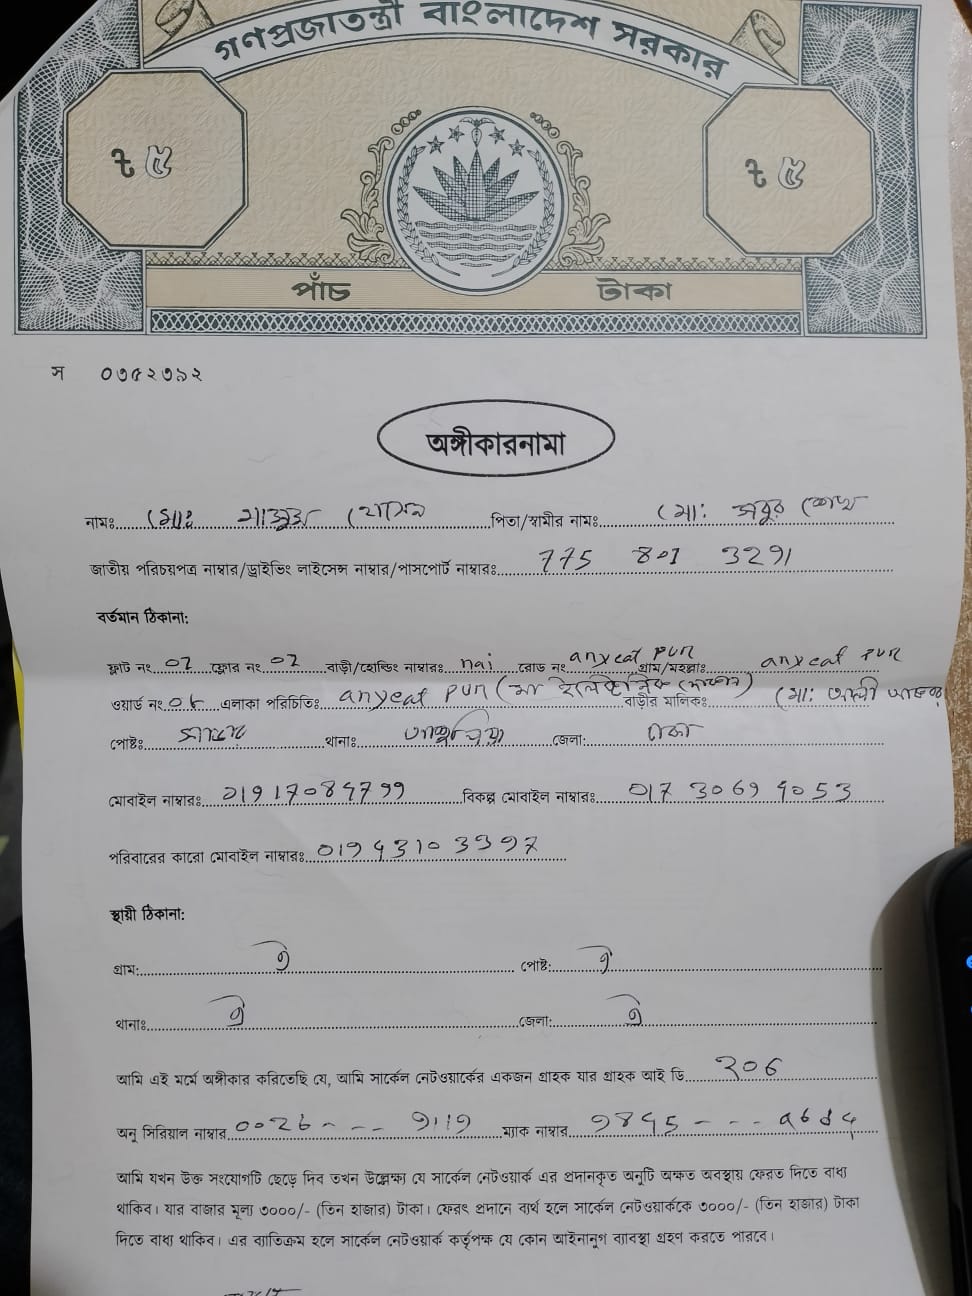 গণপ্রজাতন্ত্রী বাংলাদেশ সরকার
৳ ৫ ৳ ৫
পাঁচ টাকা
স ০৩৫২৩৯২
অঙ্গীকারনামা
নামঃ মোঃ হাসান পিতা/স্বামীর নামঃ মোঃ সবুর শেখ
জাতীয় পরিচয়পত্র নাম্বার/ড্রাইভিং লাইসেন্স নাম্বার/পাসপোর্ট নাম্বারঃ 775 801 3291
বর্তমান ঠিকানা:
ফ্লাট নং 02 ফ্লোর নং 02 বাড়ী/হোল্ডিং নাম্বারঃ nai রোড নং anyeat pur গ্রাম/মহল্লাঃ anyeat pur
ওয়ার্ড নং 06 এলাকা পরিচিতিঃ anyeat pur (মা বাড়ীর মালিকঃ মোঃ আলী
পোষ্টঃ থানাঃ আশুলিয়া জেলা: ঢাকা
মোবাইল নাম্বারঃ বিকল্প মোবাইল নাম্বারঃ
পরিবারের কারো মোবাইল নাম্বারঃ
স্থায়ী ঠিকানা:
গ্রাম: ঐ পোষ্ট: ঐ
থানাঃ ঐ জেলা: ঐ
আমি এই মর্মে অঙ্গীকার করিতেছি যে, আমি সার্কেল নেটওয়ার্কের একজন গ্রাহক যার গ্রাহক আই ডি
অনু সিরিয়াল নাম্বার ম্যাক নাম্বার
আমি যখন উক্ত সংযোগটি ছেড়ে দিব তখন উল্লেক্ষ্য যে সার্কেল নেটওয়ার্ক এর প্রদানকৃত অনুটি অক্ষত অবস্থায় ফেরত দিতে বাধ্য
থাকিব। যার বাজার মূল্য ৩০০০/- (তিন হাজার) টাকা। ফেরৎ প্রদানে ব্যর্থ হলে সার্কেল নেটওয়ার্ককে ৩০০০/- (তিন হাজার) টাকা
দিতে বাধ্য থাকিব। এর ব্যাতিক্রম হলে সার্কেল নেটওয়ার্ক কর্তৃপক্ষ যে কোন আইনানুগ ব্যাবস্থা গ্রহণ করতে পারবে।